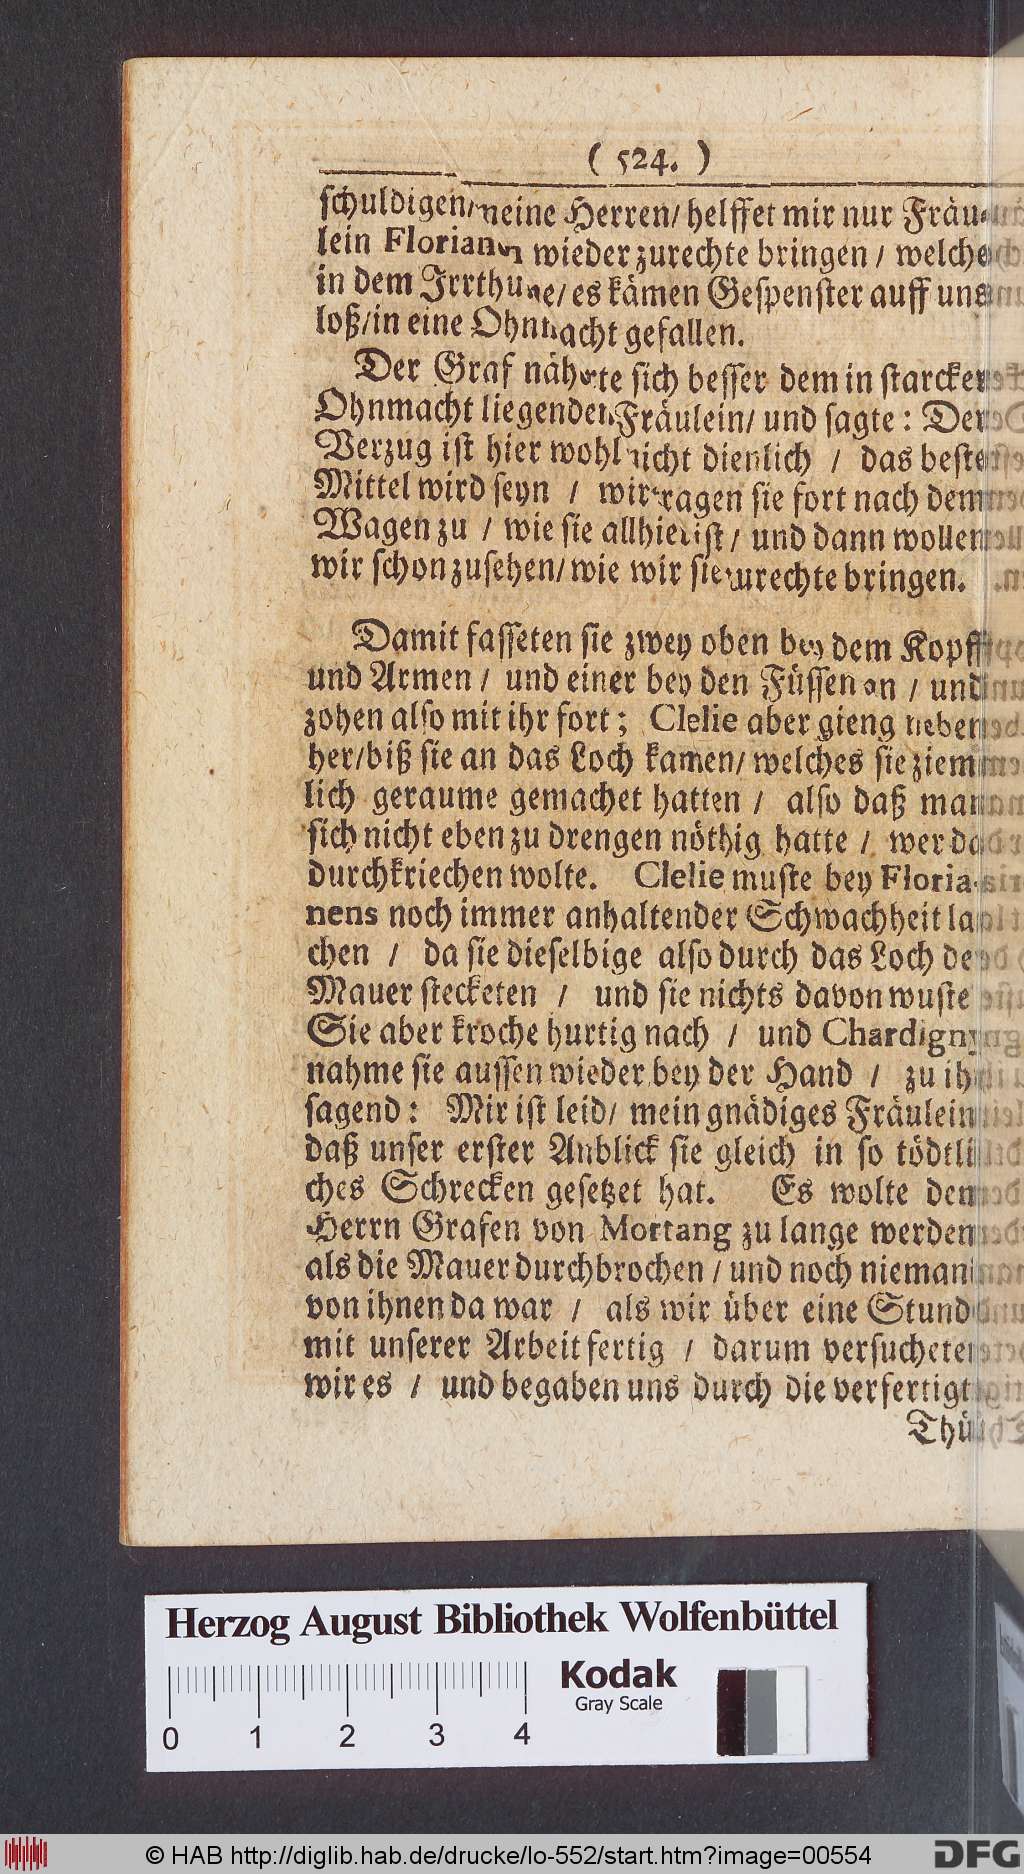 ( 524. )
schuldigen/ meine Herren/ helffet mir nur Fräu-
lein Florianen wieder zurechte bringen / welche
in dem Irrthume/ es kämen Gespenster auff uns
loß/ in eine Ohnmacht gefallen.
Der Graf näherte sich besser dem in starcker
Ohnmacht liegenden Fräulein/ und sagte: Der
Verzug ist hier wohl nicht dienlich / das beste
Mittel wird seyn / wir tragen sie fort nach dem
Wagen zu / wie sie allhier ist / und dann wollen
wir schon zusehen/ wie wir sie zurechte bringen.
Damit fasseten sie zwey oben bey dem Kopff
und Armen / und einer bey den Füssen an / und
zohen also mit ihr fort; Clelie aber gieng neben
her/ biß sie an das Loch kamen/ welches sie ziem-
lich geraume gemachet hatten / also daß man
sich nicht eben zu drengen nöthig hatte / wer da
durchkriechen wolte. Clelie muste bey Floria-
nens noch immer anhaltender Schwachheit la-
chen / da sie dieselbige also durch das Loch der
Mauer stecketen / und sie nichts davon wuste
Sie aber kroche hurtig nach / und Chardigny
nahme sie aussen wieder bey der Hand / zu ihr
sagend: Mir ist leid/ mein gnädiges Fräulein
daß unser erster Anblick sie gleich in so tödtli-
ches Schrecken gesetzet hat. Es wolte dem
Herrn Grafen von Mortang zu lange werden
als die Mauer durchbrochen / und noch niemand
von ihnen da war / als wir über eine Stund
mit unserer Arbeit fertig / darum versucheten
wir es / und begaben uns durch die verfertigt
Thü
Herzog August Bibliothek Wolfenbüttel
Kodak
Gray Scale
0 1 2 3 4
© HAB http://diglib.hab.de/drucke/lo-552/start.htm?image=00554
DFG